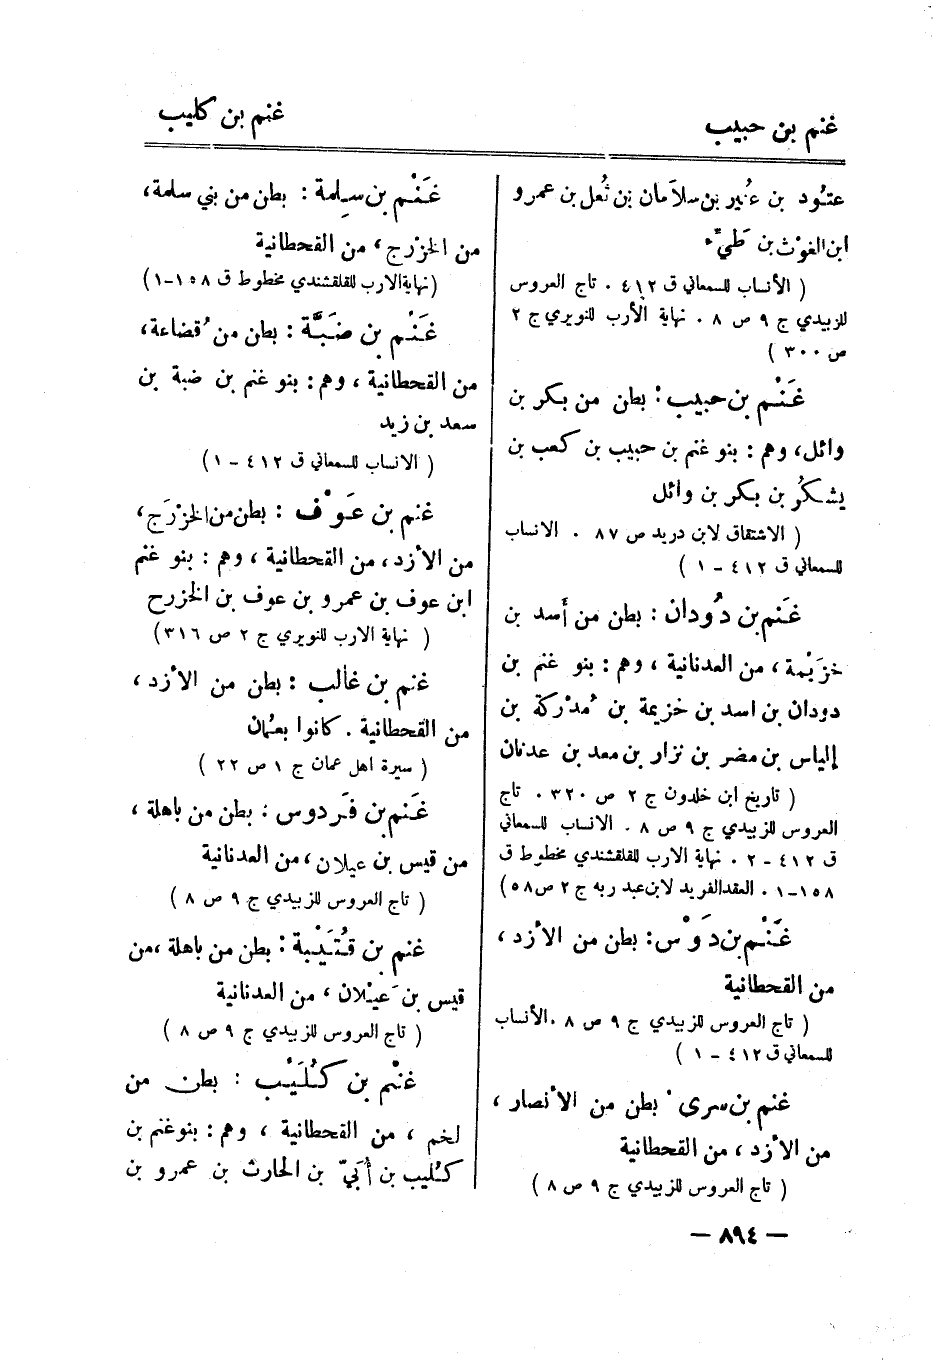 غنم بن حبيب
غنم بن كليب
عتُود بن عُنير بن سلامان بن ثُعل بن عمرو
ابن الغوْث بن طيّء
( الأنساب للسمعاني ق ٤١٢ . تاج العروس
للزبيدي ج ٩ ص ٨ . نهاية الأرب للنويري ج ٢
ص ٣٠٠ )
غَنْم بن حبيب : بطن من بكر بن
وائل، وهم : بنو غنم بن حبيب بن كعب بن
يشكُر بن بكر بن وائل
( الاشتقاق لابن دريد ص ٨٧ . الانساب
للسمعاني ق ٤١٢ – ١ )
غَنم بن دُودان : بطن من أسد بن
خزَيْمة ، من العدنانية ، وهم : بنو غنم بن
دودان بن اسد بن خزيمة بن مُدْركة بن
إلياس بن مضر بن نزار بن معد بن عدنان
( تاريخ ابن خلدون ج ٢ ص ٣٢٠ . تاج
العروس للزبيدي ج ٩ ص ٨ . الانساب للسمعاني
ق ٤١٢ – ٢ . نهاية الارب للقلقشندي مخطوط ق
١٥٨–١ . العقد الفريد لابن عبد ربه ج ٢ ص ٥٨)
غَنْم بن دَوْس : بطن من الأزد ،
من القحطانية
( تاج العروس للزبيدي ج ٩ ص ٨ . الأنساب
للسمعاني ق ٤١٢ – ١ )
غنم بن سرى : بطن من الأنصار ،
من الأزد ، من القحطانية
( تاج العروس للزبيدي ج ٩ ص ٨ )
غَنْم بن سلِمة : بطن من بني سلمة ،
من الخزْرج ، من القحطانية
(نهاية الارب للقلقشندي مخطوط ق ١٥٨–١)
غَنْم بن ضَبَّة : بطن من قُضاعة ،
من القحطانية ، وهم : بنو غنم بن ضبة بن
سعد بن زيد
( الانساب للسمعاني ق ٤١٢ – ١)
غنم بن عَوْف : بطن من الخزْرَج ،
من الأزد ، من القحطانية ، وهم : بنو غنم
ابن عوف بن عمرو بن عوف بن الخزرج
( نهاية الارب للنويري ج ٢ ص ٣١٦)
غنم بن غالب : بطن من الأزد ،
من القحطانية . كانوا بعُمان
( سيرة اهل عمان ج ١ ص ٢٢ )
غَنم بن فَردوس : بطن من باهلة ،
من قيس بن عيلان ، من العدنانية
( تاج العروس للزبيدي ج ٩ ص ٨ )
غنم بن قُتَيْبة : بطن من باهلة ، من
قيس بن عَيْلان ، من العدنانية
( تاج العروس للزبيدي ج ٩ ص ٨ )
غنْم بن كُلَيْب : بطن من
لخم ، من القحطانية ، وهم : بنو غنم بن
كُليب بن أُبَيّ بن الحارث بن عمرو بن
– ٨٩٤ –